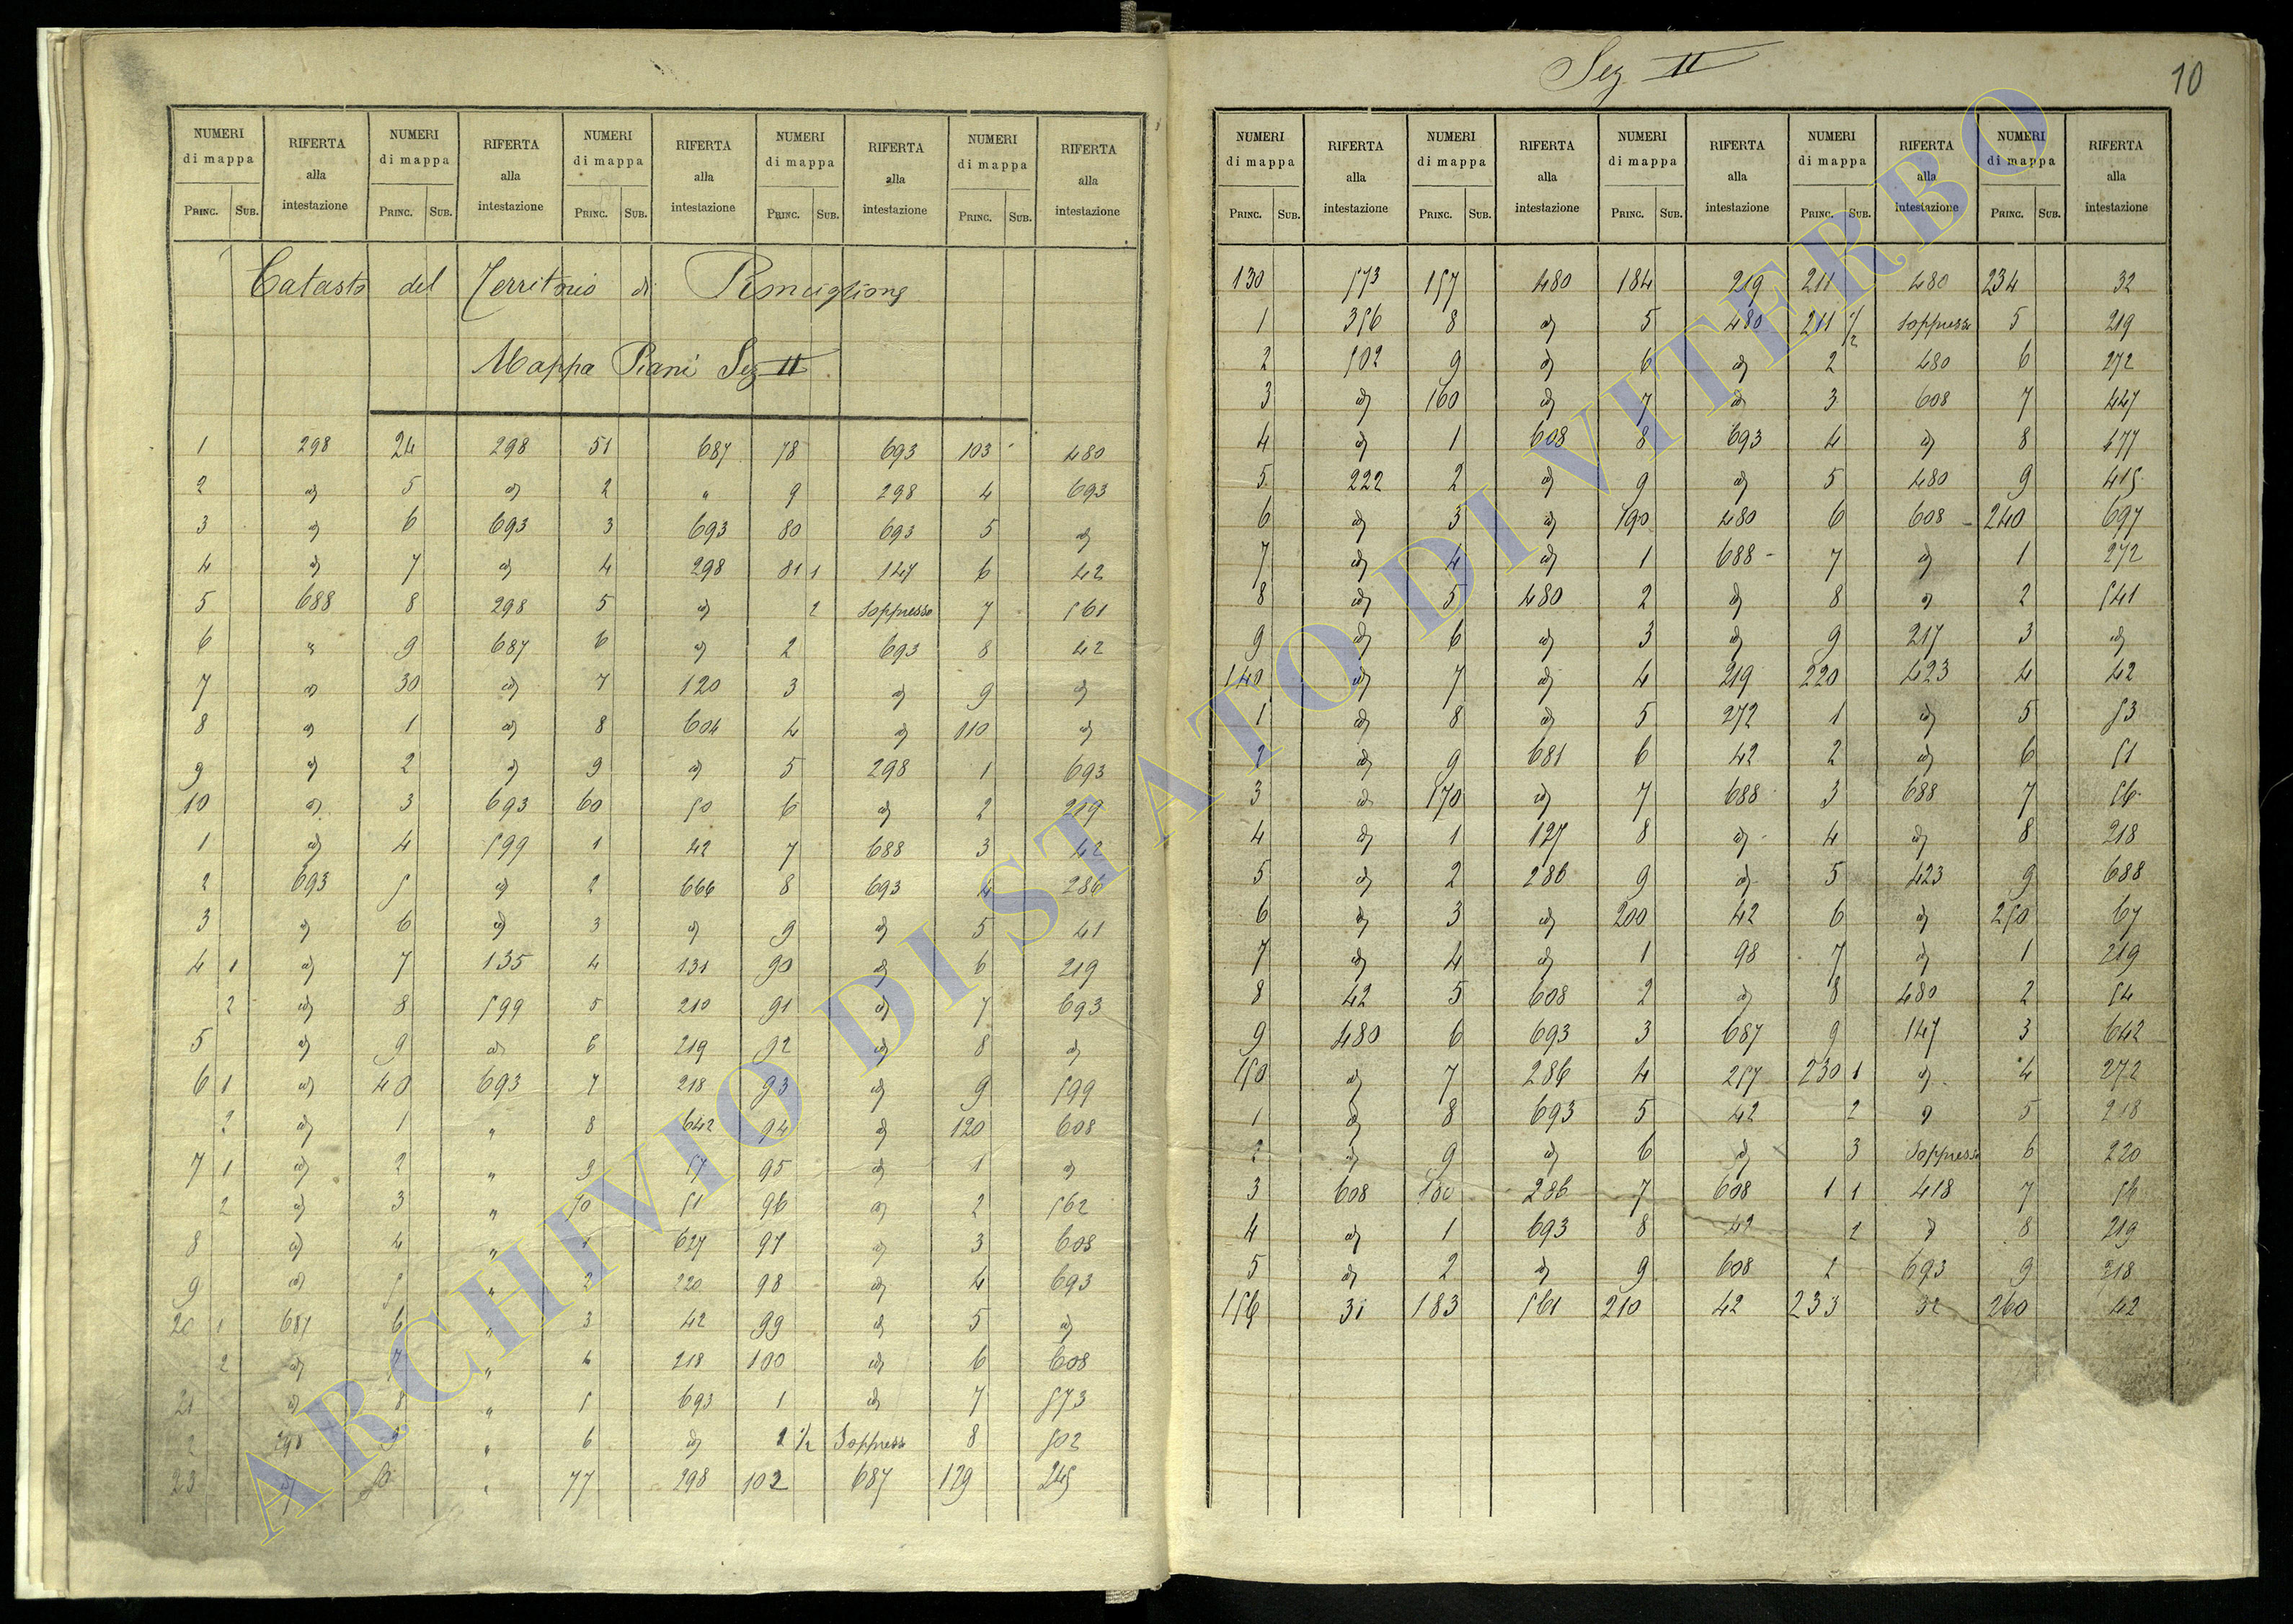 NUMERI di mappa RIFERTA alla intestazione NUMERI di mappa RIFERTA alla intestazione NUMERI di mappa RIFERTA alla intestazione NUMERI di mappa RIFERTA alla intestazione NUMERI di mappa RIFERTA alla intestazione
PRINC. SUB. PRINC. SUB. PRINC. SUB. PRINC. SUB. PRINC. SUB.
Catasto del Territorio di Ronciglione
Mappa Piani Sez II
1 298 24 298 51 687 78 693 103 480
2 id 5 id 2 " 9 298 4 693
3 id 6 693 3 693 80 693 5 id
4 id 7 id 4 298 81 1 147 6 42
5 688 8 298 5 id 2 soppresso 7 561
6 " 9 687 6 id 2 693 8 42
7 id 30 id 7 120 3 id 9 id
8 id 1 id 8 604 4 id 110 id
9 id 2 id 9 id 5 298 1 693
10 id 3 693 60 50 6 id 2 219
1 id 4 599 1 42 7 688 3 42
2 693 5 id 2 666 8 693 4 286
3 id 6 id 3 id 9 id 5 41
4 1 id 7 135 4 131 90 id 6 219
2 id 8 599 5 210 91 id 7 693
5 id 9 id 6 219 92 id 8 id
6 1 id 40 693 7 218 93 id 9 599
2 id 1 " 8 642 94 id 120 608
7 1 id 2 " 9 57 95 id 1 id
2 id 3 " 70 51 96 id 2 562
8 id 4 " 1 627 97 id 3 608
9 id 5 " 2 220 98 id 4 693
20 1 687 6 " 3 42 99 id 5 id
2 id 7 " 4 218 100 id 6 608
21 id 8 " 5 693 1 id 7 573
2 298 9 " 6 id 2 1/2 Soppresso 8 502
23 id 50 " 77 298 102 687 129 245
Sez II
10
NUMERI di mappa RIFERTA alla intestazione NUMERI di mappa RIFERTA alla intestazione NUMERI di mappa RIFERTA alla intestazione NUMERI di mappa RIFERTA alla intestazione NUMERI di mappa RIFERTA alla intestazione
PRINC. SUB. PRINC. SUB. PRINC. SUB. PRINC. SUB. PRINC. SUB.
130 573 157 480 184 219 211 480 234 32
1 356 8 id 5 480 211 1/2 soppresso 5 219
2 502 9 id 6 id 2 480 6 272
3 id 160 id 7 id 3 608 7 447
4 id 1 608 8 693 4 id 8 477
5 222 2 id 9 id 5 480 9 415
6 id 3 id 190 480 6 608 240 697
7 id 4 id 1 688 7 id 1 272
8 id 5 480 2 id 8 id 2 541
9 id 6 id 3 id 9 217 3 id
140 id 7 id 4 219 220 423 4 42
1 id 8 id 5 272 1 id 5 53
2 id 9 681 6 42 2 id 6 51
3 id 170 id 7 688 3 688 7 56
4 id 1 127 8 id 4 id 8 218
5 id 2 286 9 id 5 423 9 688
6 id 3 id 200 42 6 id 250 67
7 id 4 id 1 98 7 id 1 219
8 42 5 608 2 id 8 480 2 54
9 480 6 693 3 687 9 147 3 642
150 id 7 286 4 257 230 1 id 4 272
1 id 8 693 5 42 2 id 5 218
2 id 9 id 6 id 3 Soppresso 6 220
3 608 180 286 7 608 1 1 418 7 56
4 id 1 693 8 42 2 id 8 219
5 id 2 id 9 608 2 693 9 218
156 31 183 561 210 42 233 32 260 42
ARCHIVIO DI STATO DI VITERBO